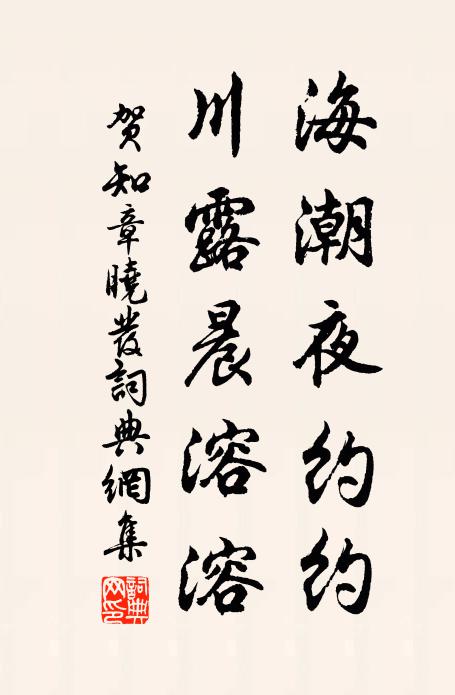 海潮夜约约
川露晨溶溶
贺知章曉發詞典網集
詞典網印